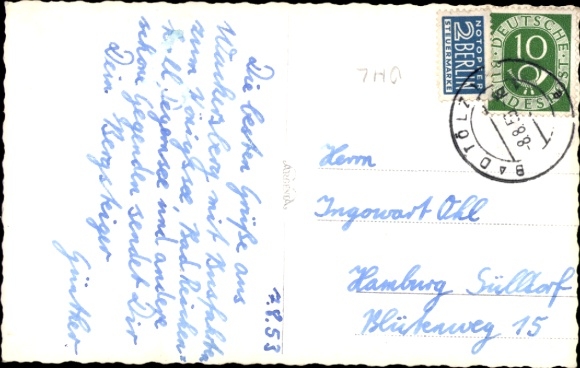 Die besten Grüße aus
Wackersberg mit Busfahrten
zum Königssee, Bad Reichen=
hall Tegernsee und andere
schöne Gegenden sendet Dir
Dein Bergsteiger
Günther
7.8.53
Herrn
Ingowart Ohl
Hamburg Sülldorf
Blütenweg 15
NOTOPFER
2 BERLIN
STEUERMARKE
DEUTSCHE
BUNDESPOST
10
BAD TÖLZ
-8.8.53